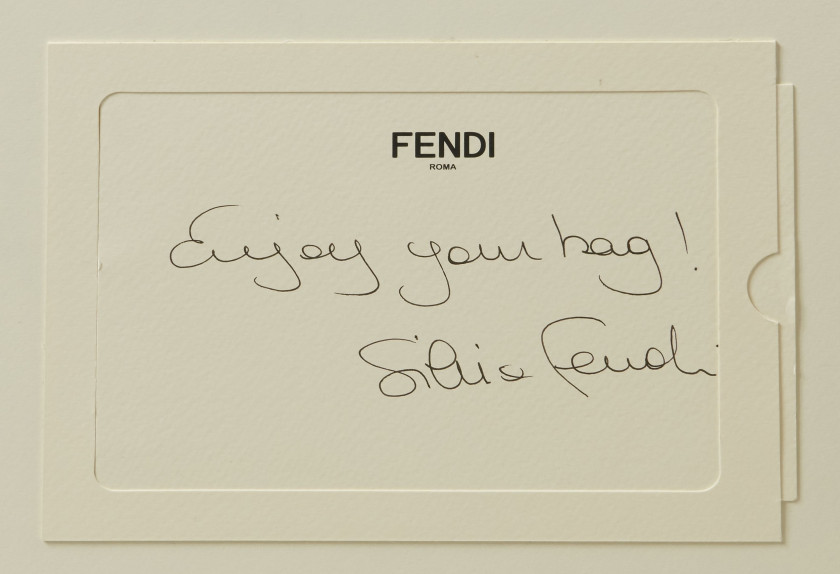 FENDI
ROMA
Enjoy your bag!
Silvia Fendi